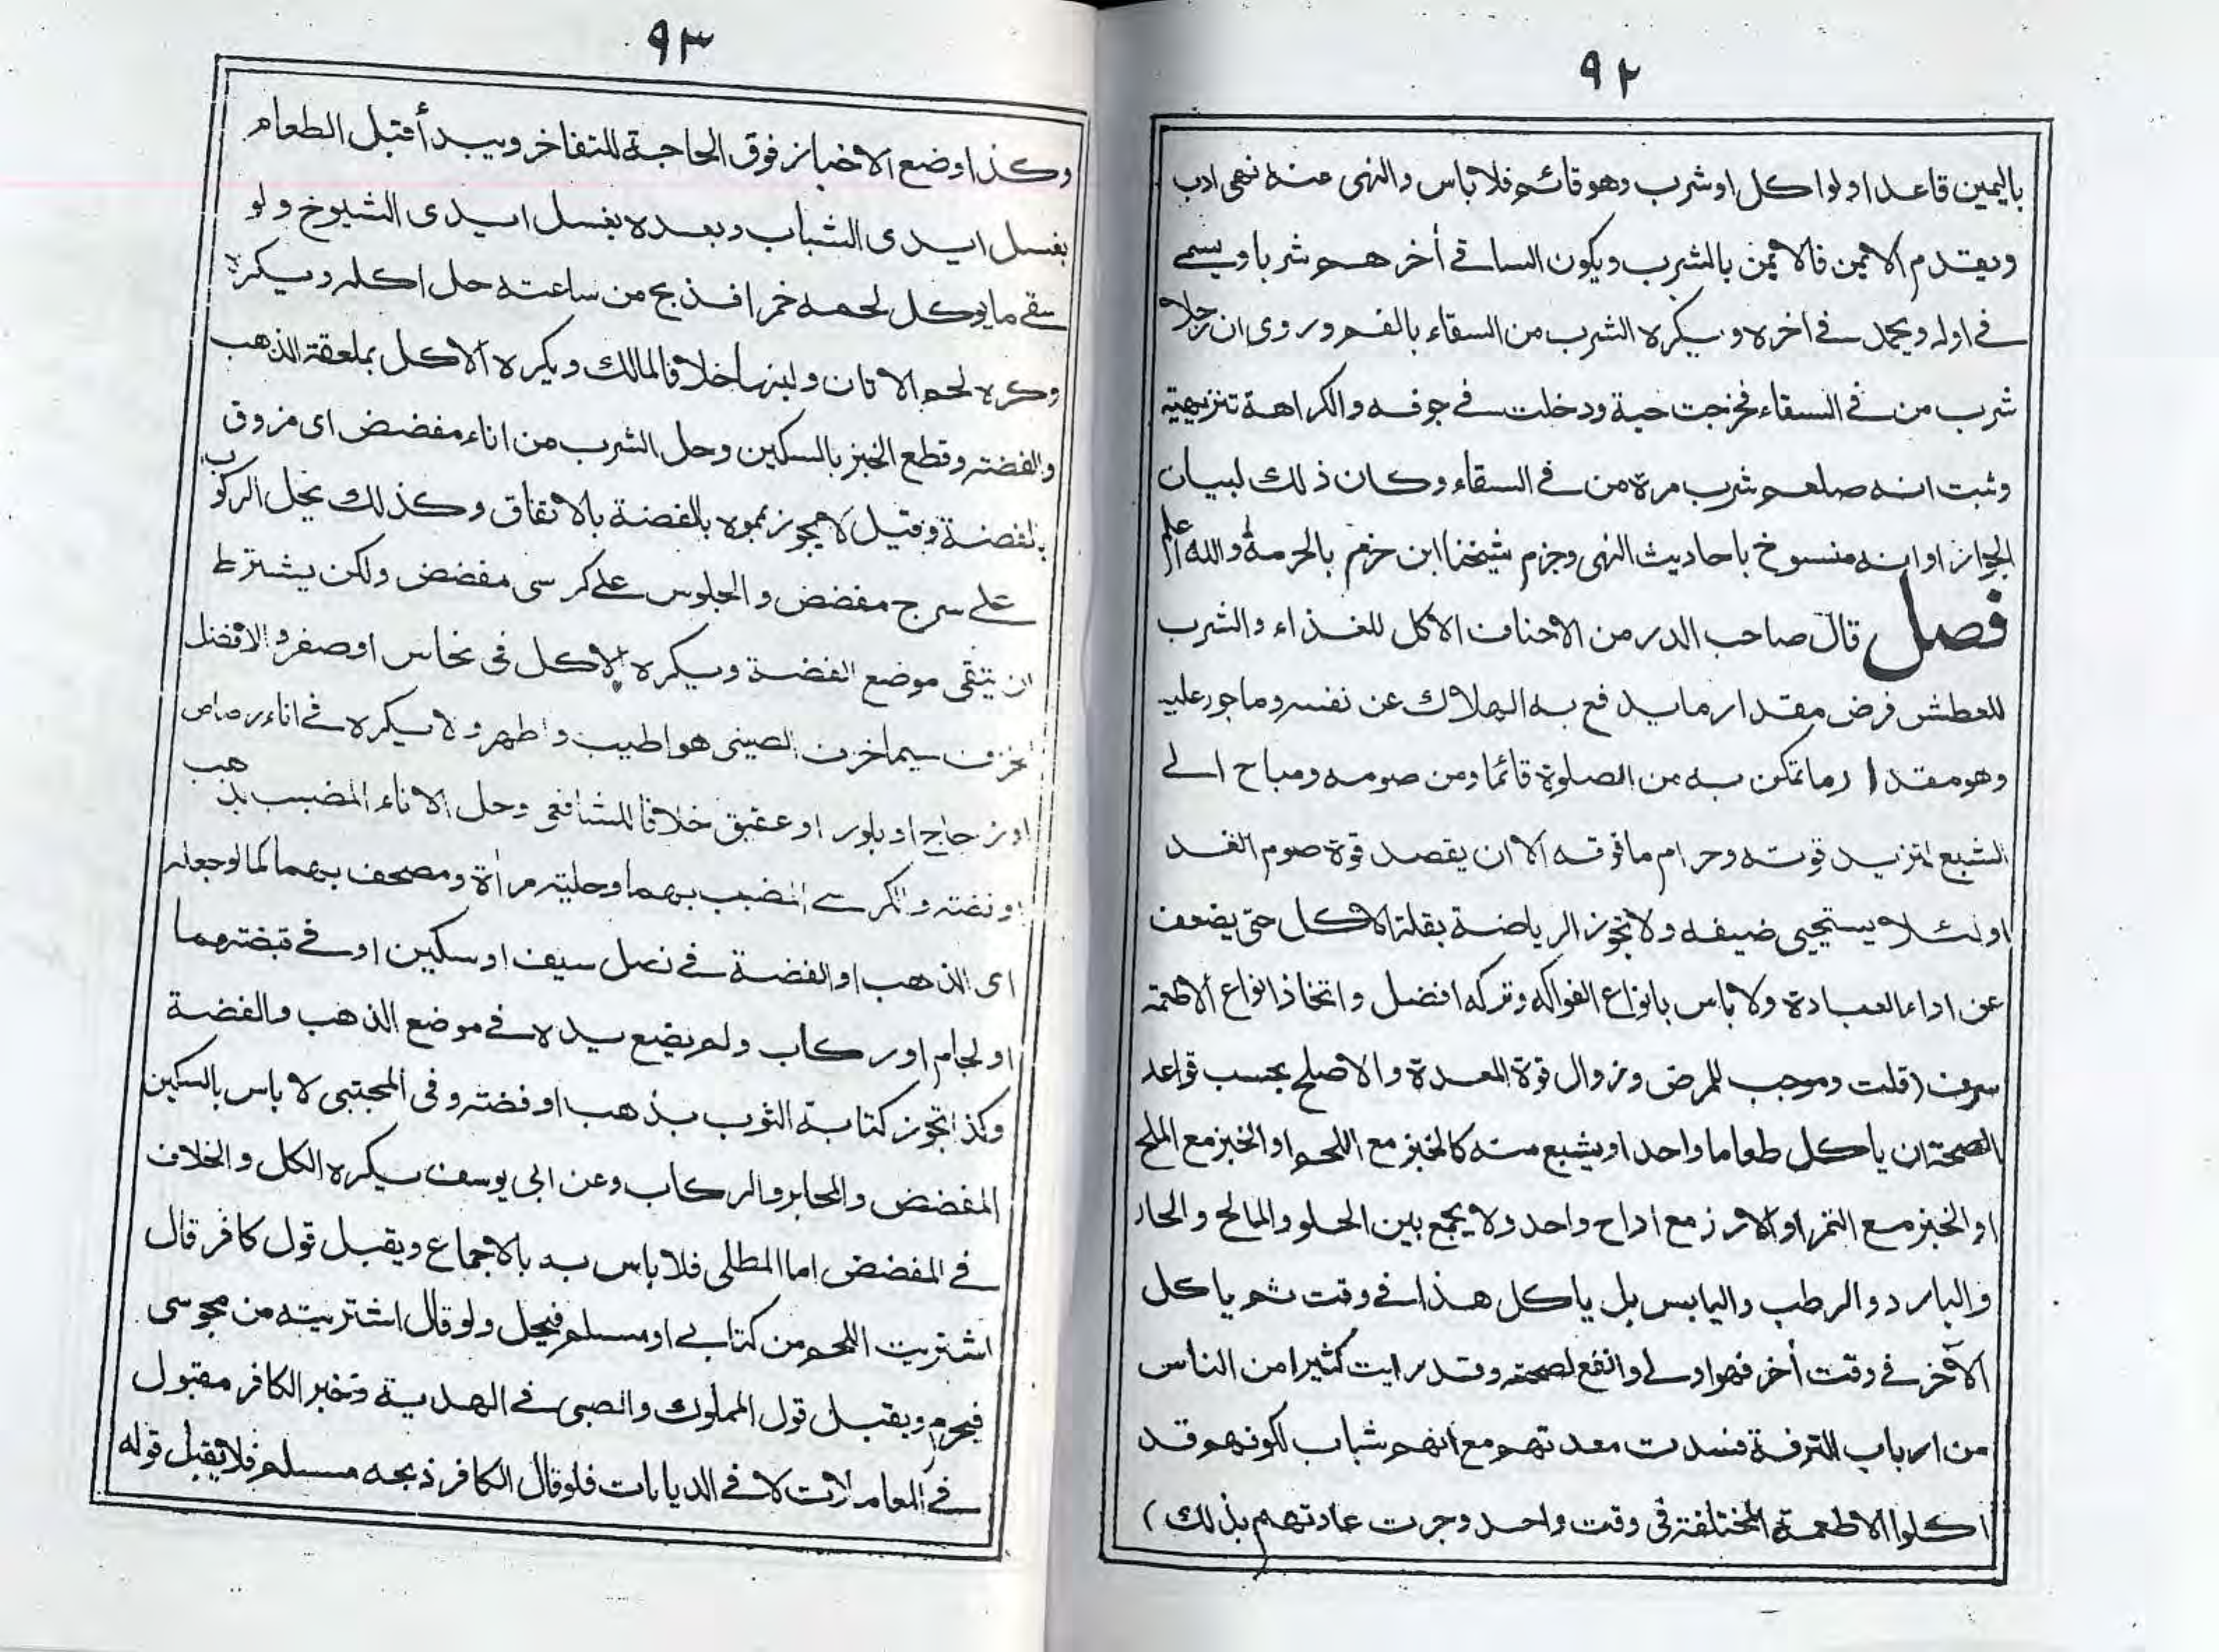 ٩٢
باليمين قاعدا ولو اكل او شرب وهو قائم فلا باس والنهى عنه نهى ادب
ويقدم الايمن فالايمن بالشرب ويكون الساقے أخرهم شربا ويسمے
فے اوله ويحمد فے اخره ويكره الشرب من السقاء بالفم وروى ان رجلا
شرب من فے السقاء فخرجت حية ودخلت فے جوفه والكراهة تنزيهية
وثبت انه صلعم شرب مرة من فے السقاء وكان ذلك لبيان
الجواز او انه منسوخ باحاديث النهى وجزم شيخنا ابن حزم بالحرمة والله أعلم
فصل قال صاحب الدر من الاحناف الاكل للغذاء والشرب
للعطش فرض مقدار ما يدفع به الهلاك عن نفسه وماجور عليه
وهو مقدار ما تمكن به من الصلوة قائما ومن صومه ومباح الے
الشبع لتزيد قوته وحرام ما فوقه الا ان يقصد قوة صوم الغد
او لئلا يستحيى ضيفه ولا تجوز الرياضة بقلة الاكل حتى يضعف
عن اداء العبادة ولا باس بانواع الفواكه وتركه افضل واتخاذ انواع الاطعمة
سرف (قلت وموجب للمرض وزوال قوة المعدة والاصلح بحسب قواعد
الصحة ان ياكل طعاما واحدا ويشبع منه كالخبز مع اللحم او الخبز مع الملح
او الخبز مع التمر او الارز مع اداح واحد ولا يجمع بين الحلو والمالح والحار
والبارد والرطب واليابس بل ياكل هذا فے وقت ثم ياكل
الآخر فے وقت أخر فهو اولے وانفع لصحته وقد رايت كثيرا من الناس
من ارباب الترفة فسدت معدتهم مع انهم شباب لكونهم قد
اكلوا الاطعمة المختلفة فى وقت واحد وجرت عادتهم بذلك)
٩٣
وكذا وضع الاخباز فوق الحاجة للتفاخر ويبدأ قبل الطعام
بغسل ايدى الشباب وبعده بغسل ايدى الشيوخ ولو
سقے ما يوكل لحمه خمرا فذبح من ساعته حل اكله ويكره
وكره لحم الاتان ولبنها خلافا لمالك ويكره الاكل بملعقة الذهب
والفضة وقطع الخبز بالسكين وحل الشرب من اناء مفضض اى مزوق
بالفضة وقيل لا يجوز مموه بالفضة بالاتفاق وكذلك يحل الركوب
علے سرج مفضض والجلوس علے كرسى مفضض ولكن يشترط
ان يتقى موضع الفضة ويكره الاكل فى نحاس او صفر والافضل
الخزف سيما خزف الصينى هو اطيب واطهر ولا يكره فے اناء رصاص
او زجاج او بلور او عقيق خلافا للشافعى وحل الاناء المضبب بذهب
او فضة والكرسے المضبب بهما وحلية مرأة ومصحف بهما كما لو جعله
اى الذهب او الفضة فے نصل سيف او سكين او فے قبضتهما
او لجام او ركاب ولم يضع يده فے موضع الذهب والفضة
وكذا تجوز كتابة الثوب بذهب او فضة وفى المجتبى لا باس بالسكين
المفضض والمحابر والركاب وعن ابى يوسف يكره الكل والخلاف
فے المفضض اما المطلى فلا باس به بالاجماع ويقبل قول كافر قال
اشتريت اللحم من كتابے او مسلم فيحل ولو قال اشتريته من مجوسى
فيحرم ويقبل قول المملوك والصبى فے الهدية وخبر الكافر مقبول
فے المعاملات لا فے الديانات فلو قال الكافر ذبحه مسلم فلا يقبل قوله